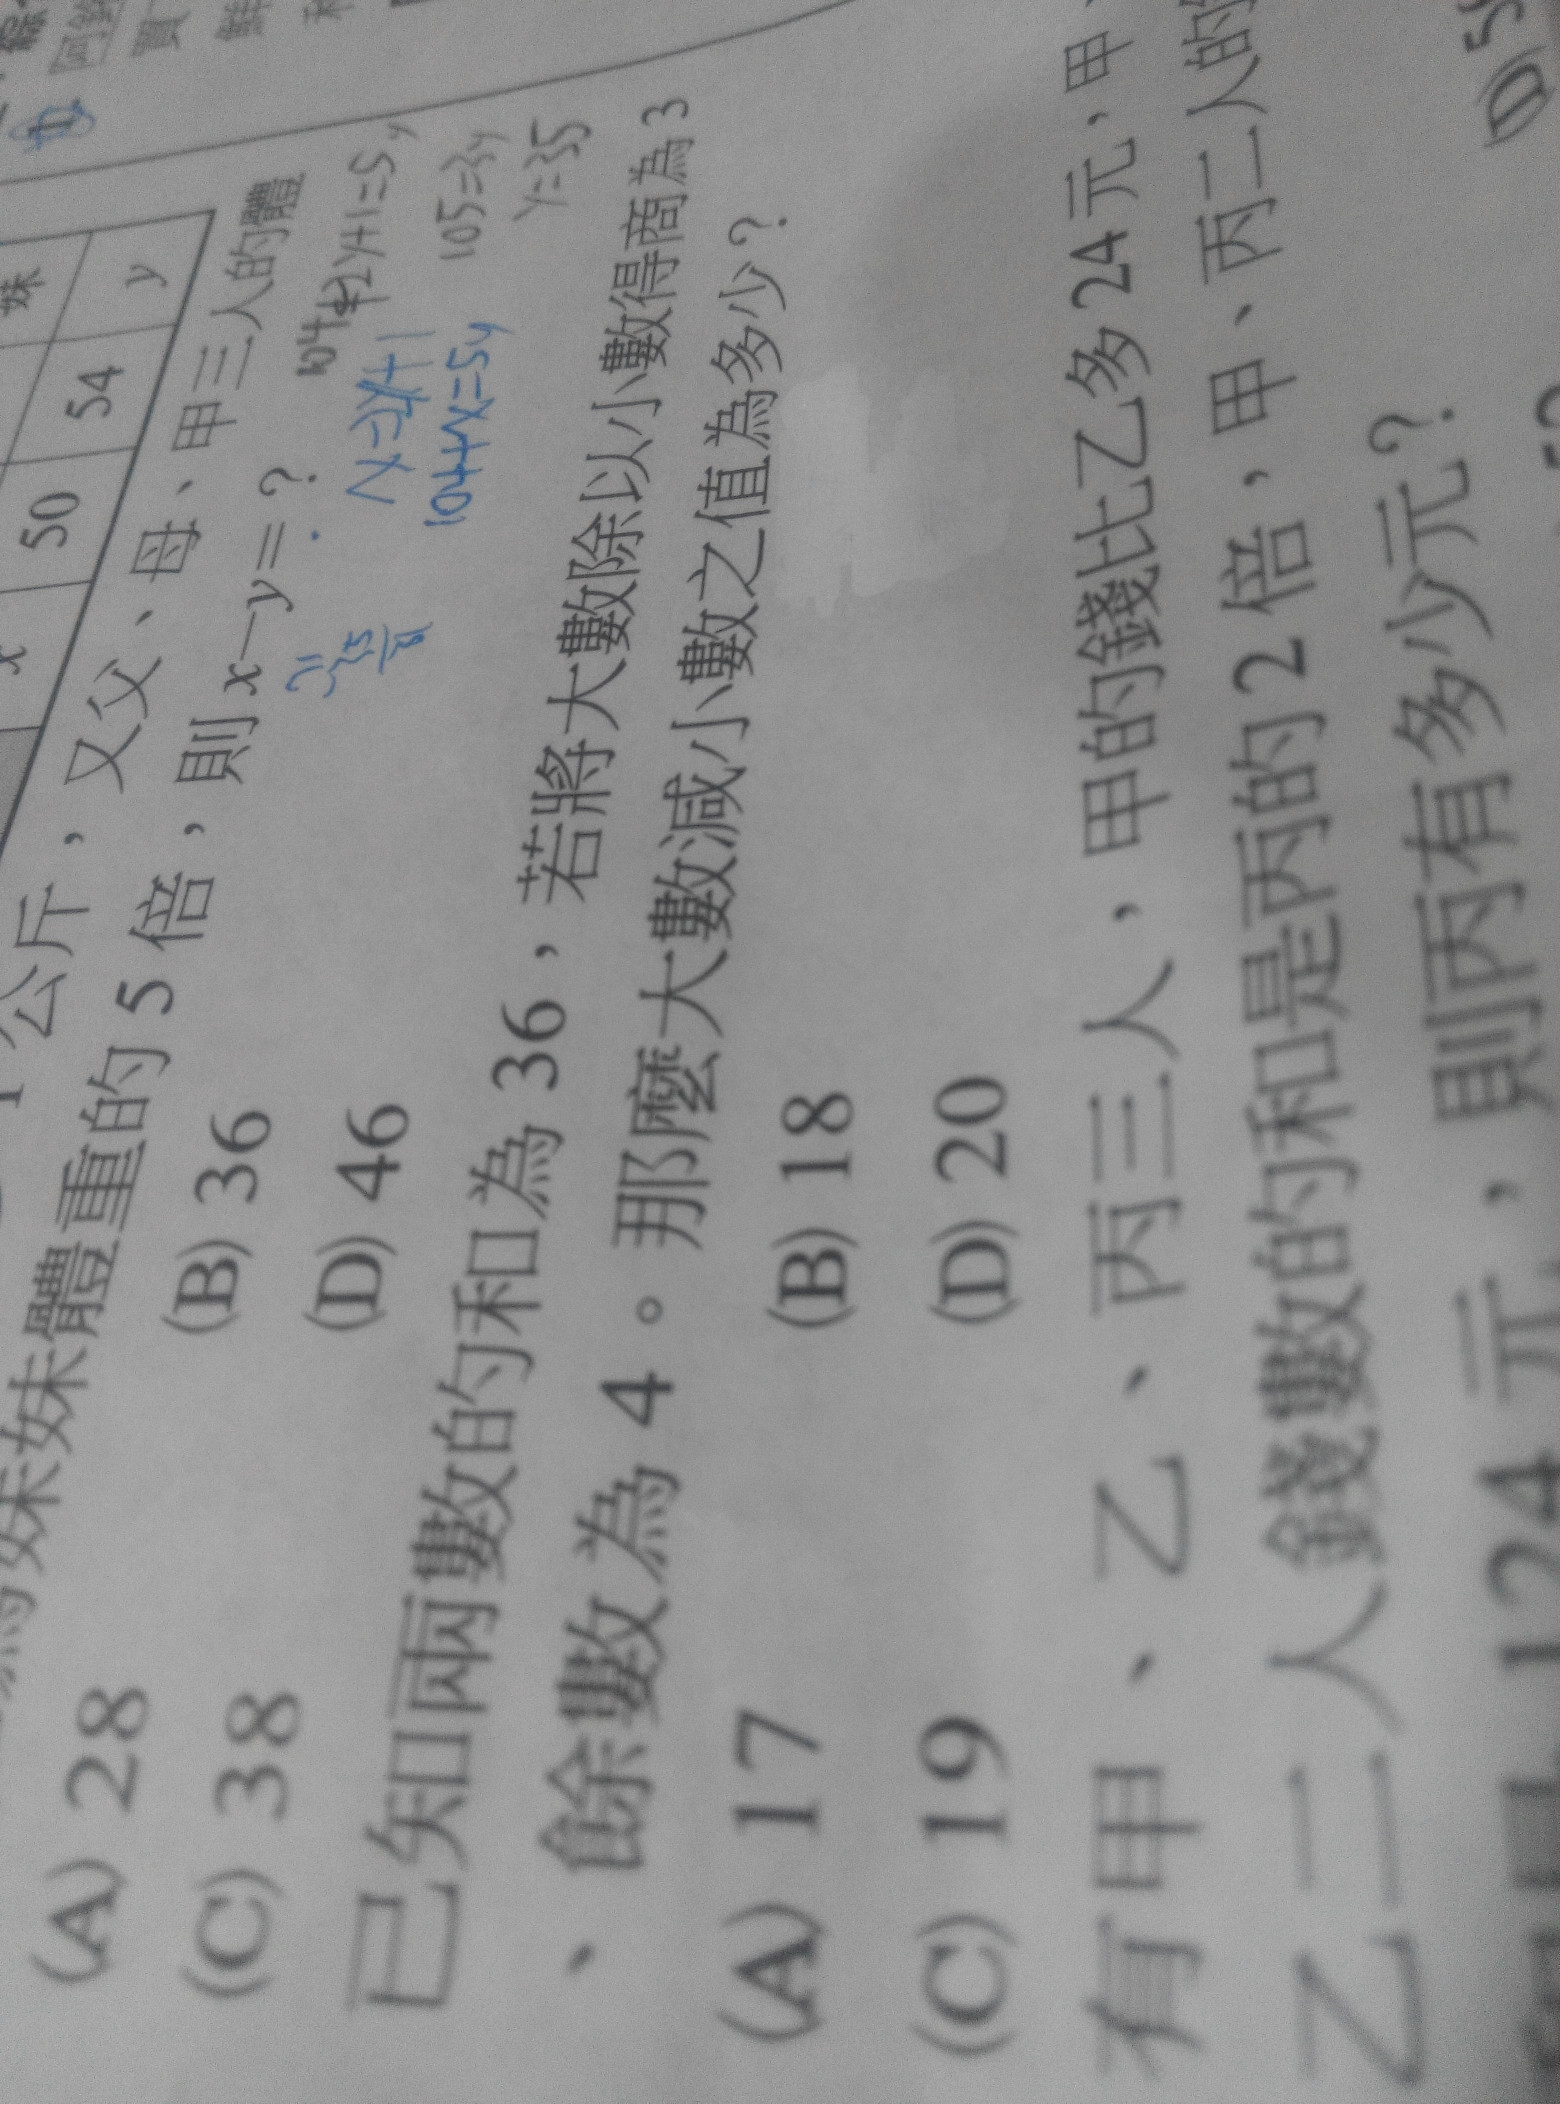 妹
x 50 54 y
公斤，又父、母、甲三人的體
妹妹體重的 5 倍，則 x－y＝？
(A) 28 (B) 36
(C) 38 (D) 46
x=2y+1
104+x=5y
104+2y+1=5y
105=3y
y=35
已知兩數的和為 36，若將大數除以小數得商為 3
、餘數為 4。那麼大數減小數之值為多少？
(A) 17 (B) 18
(C) 19 (D) 20
有甲、乙、丙三人，甲的錢比乙多 24 元，甲、
乙二人錢數的和是丙的 2 倍，甲、丙二人的
124 元，則丙有多少元？
(D)